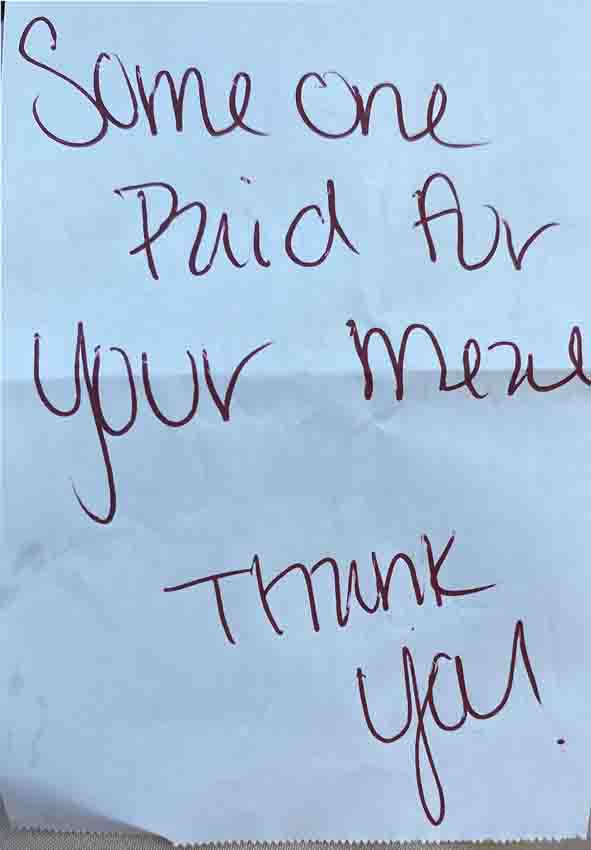 Someone
Paid for
your meal
Thank
you!